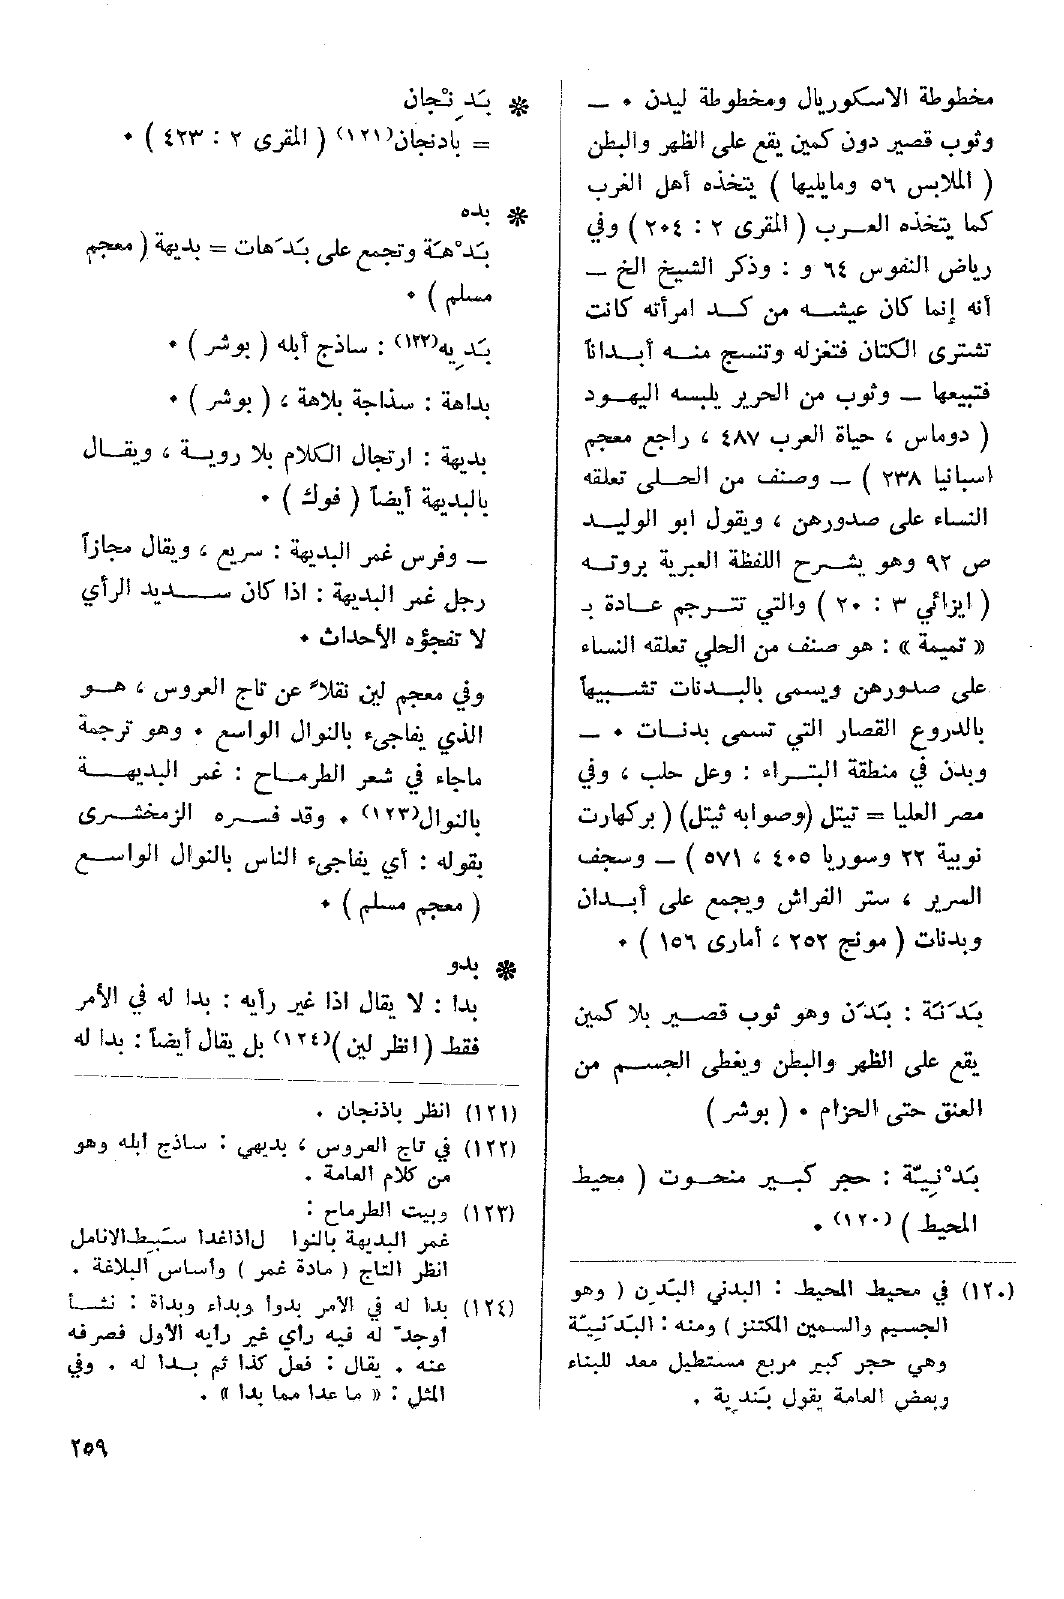 مخطوطة الاسكوريال ومخطوطة ليدن ٠ ــ
وثوب قصير دون كمين يقع على الظهر والبطن
( الملابس ٥٦ ومايليها ) يتخذه أهل الغرب
كما يتخذه العرب ( المقرى ٢ : ٢٠٤ ) وفي
رياض النفوس ٦٤ و : وذكر الشيخ الخ ــ
أنه إنما كان عيشه من كد امرأته كانت
تشترى الكتان فتغزله وتنسج منه أبداناً
فتبيعها ــ وثوب من الحرير يلبسه اليهود
( دوماس ، حياة العرب ٤٨٧ ، راجع معجم
اسبانيا ٢٣٨ ) ــ وصنف من الحلى تعلقه
النساء على صدورهن ، ويقول ابو الوليد
ص ٩٢ وهو يشرح اللفظة العبرية بروته
( ايزائي ٣ : ٢٠ ) والتي تترجم عادة بـ
« تميمة » : هو صنف من الحلي تعلقه النساء
على صدورهن ويسمى بالبدنات تشبيهاً
بالدروع القصار التي تسمى بدنات ٠ ــ
وبدن في منطقة البتراء : وعل حلب ، وفي
مصر العليا = تيتل (وصوابه ثيتل) ( بركهارت
نوبية ٢٢ وسوريا ٤٠٥ ، ٥٧١ ) ــ وسجف
السرير ، ستر الفراش ويجمع على أبدان
وبدنات ( مونج ٢٥٢ ، أمارى ١٥٦ ) ٠
بَدَنَة : بَدَن وهو ثوب قصير بلا كمين
يقع على الظهر والبطن ويغطى الجسم من
العنق حتى الحزام ٠ ( بوشر )
بَدْنِيّة : حجر كبير منحوت ( محيط
المحيط ) (١٢٠) ٠
(١٢٠) في محيط المحيط : البدني البَدِن ( وهو
الجسيم والسمين المكتنز ) ومنه : البَدَنِيّة
وهي حجر كبير مربع مستطيل معد للبناء
وبعض العامة يقول بَندِية .
✻ بَدِنْجان
= باذنجان(١٢١) ( المقرى ٢ : ٤٢٣ ) ٠
✻ بده
بَدْهَة وتجمع على بَدَهات = بديهة ( معجم
مسلم ) ٠
بَديه(١٢٢) : ساذج أبله ( بوشر ) ٠
بداهة : سذاجة بلاهة ، ( بوشر ) ٠
بديهة : ارتجال الكلام بلا روية ، ويقال
بالبديهة أيضاً ( فوك ) ٠
ــ وفرس غمر البديهة : سريع ، ويقال مجازاً
رجل غمر البديهة : اذا كان سديد الرأي
لا تفجؤه الأحداث ٠
وفي معجم لين نقلاً عن تاج العروس ، هو
الذي يفاجىء بالنوال الواسع ٠ وهو ترجمة
ماجاء في شعر الطرماح : غمر البديهة
بالنوال(١٢٣) ٠ وقد فسره الزمخشرى
بقوله : أي يفاجىء الناس بالنوال الواسع
( معجم مسلم ) ٠
✻ بدو
بدا : لا يقال اذا غير رأيه : بدا له في الأمر
فقط ( انظر لين )(١٢٤) بل يقال أيضاً : بدا له
(١٢١) انظر باذنجان .
(١٢٢) في تاج العروس ، بديهي : ساذج ابله وهو
من كلام العامة .
(١٢٣) وبيت الطرماح :
غمر البديهة بالنوا ل اذا غدا سَبِط الانامل
انظر التاج ( مادة غمر ) وأساس البلاغة .
(١٢٤) بدا له في الأمر بدوا وبداء وبداة : نشأ
أوجد له فيه رأي غير رأيه الأول فصرفه
عنه . يقال : فعل كذا ثم بدا له . وفي
المثل : « ما عدا مما بدا » .
٢٥٩